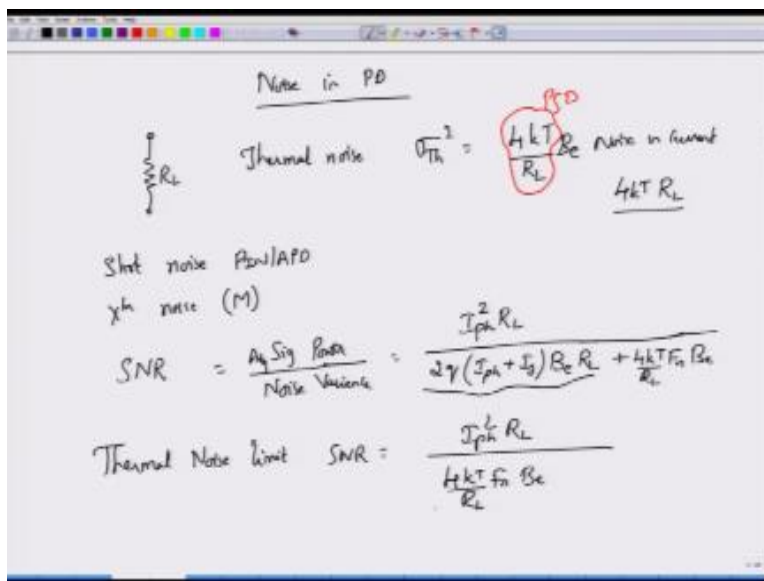 Noise in PD
PSD
R_L Thermal noise σ_Th² = 4kT/R_L Be Noise in current
4kT R_L
Shot noise PIN/APD
xⁿ noise (M)
SNR = Avg Sig Power / Noise Variance = I_ph² R_L / 2q(I_ph + I_d) Be R_L + 4kT/R_L Fn Be
Thermal Noise limit SNR = I_ph² R_L / 4kT/R_L Fn Be